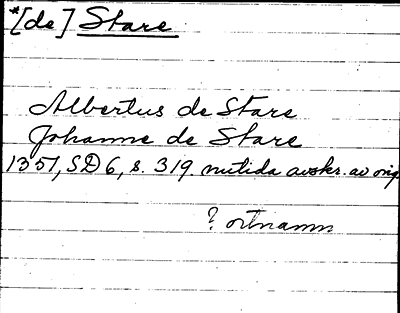 *[de] Stare
Albertus de Stare
Johanne de Stare
1351, SD 6, s. 319 nutida avskr. av orig
? ortnamn